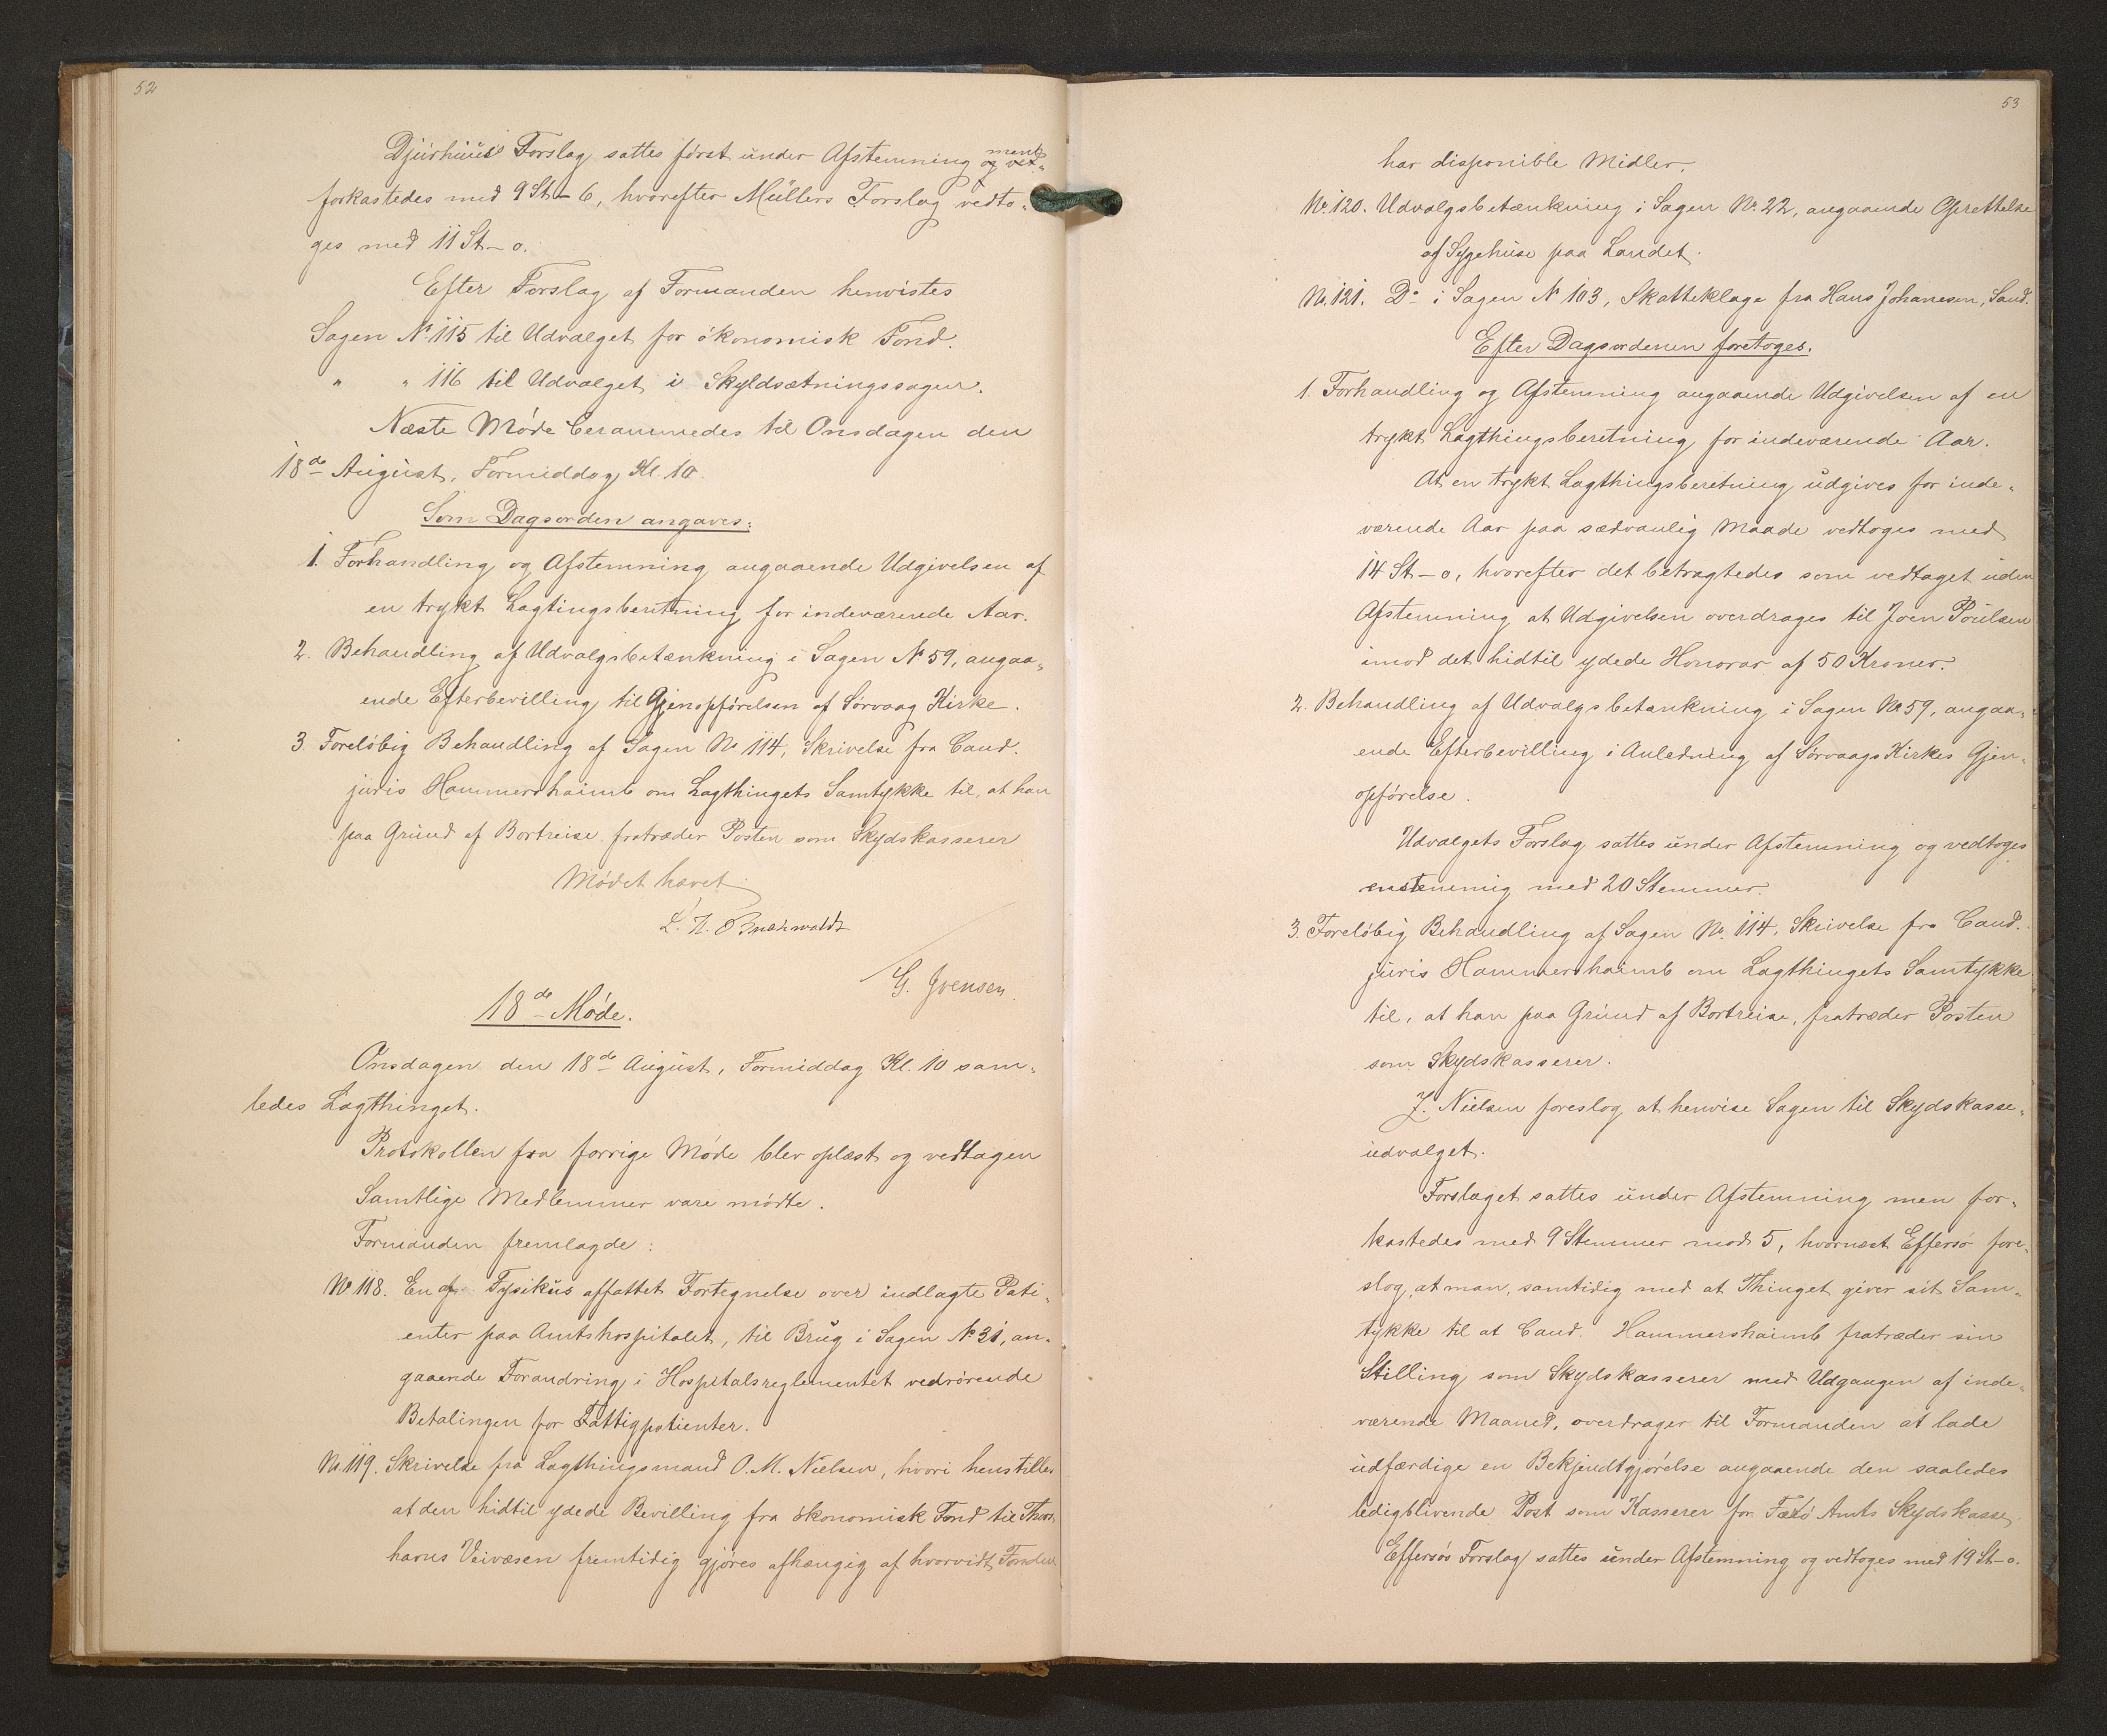 52
Djurhuus's Forslag sattes først under Afstemning og ved- men
forkastedes med 9 St - 6, hvorefter Müllers Forslag vedto-
ges med 11 St - 0.
Efter Forslag af Formanden henvistes
Sagen No 115 til Udvalget for økonomisk Fond.
" " 116 til Udvalget i Skyldsætningssagen.
Næste Møde berammedes til Onsdagen den
18de August, Formiddag Kl. 10.
Som Dagsorden angaves:
1. Forhandling og Afstemning angaaende Udgivelsen af
en trykt Lagtingsberetning for indeværende Aar.
2. Behandling af Udvalgsbetænkning i Sagen No 59, angaa-
ende Efterbevilling til Gjenopførelsen af Sørvaag Kirke.
3. Foreløbig Behandling af Sagen No. 114, Skrivelse fra Cand.
juris Hammershaimb om Lagthingets Samtykke til, at han
paa Grund af Bortreise fratræder Posten som Skydskasserer
Mødet hævet
G. Jvensen.
18de Møde.
Onsdagen den 18de August, Formiddag Kl. 10 sam-
ledes Lagthinget.
Protokollen fra forrige Møde blev oplæst og vedtagen
Samtlige Medlemmer vare mødte.
Formanden fremlagde:
No 118. En af Fysikus affattet Fortegnelse over indlagte Pati-
enter paa Amtshospitalet, til Brug i Sagen No 31, an-
gaaende Forandring i Hospitalsreglementet vedrørende
Betalingen for Fattigpatienter.
No. 119. Skrivelse fra Lagthingsmand O. M. Nielsen, hvori henstilles
at den hidtil ydede Bevilling fra økonomisk Fond til Thors
havns Veivæsen fremtidig gjøres afhængig af hvorvidt Fonden
53
har disponible Midler.
No. 120. Udvalgsbetænkning i Sagen No. 22, angaaende Oprettelse
af Sygehuse paa Landet.
No. 121. Do i Sagen No 103, Skatteklage fra Hans Johannesen, Sand.
Efter Dagsordenen foretoges.
1. Forhandling og Afstemning angaaende Udgivelsen af en
trykt Lagthingsberetning for indeværende Aar.
At en trykt Lagthingsberetning udgives for inde-
værende Aar paa sædvanlig Maade vedtoges med
14 St - 0, hvorefter det betragtedes som vedtaget uden
Afstemning at Udgivelsen overdrages til Joen Poulsen
imod det hidtil ydede Honorar af 50 Kroner.
2. Behandling af Udvalgsbetænkning i Sagen No 59, angaa-
ende Efterbevilling i Anledning af Sørvaags Kirkes Gjen-
opførelse.
Udvalgets Forslag sattes under Afstemning og vedtoges
enstemmig med 20 Stemmer.
3. Foreløbig Behandling af Sagen No. 114, Skrivelse fra Cand.
juris Hammershaimb om Lagthingets Samtykke
til, at han paa Grund af Bortreise, fratræder Posten
som Skydskasserer.
J. Nielsen foreslog at henvise Sagen til Skydskasse-
udvalget.
Forslaget sattes under Afstemning men for-
kastedes med 9 Stemmer mod 5, hvornæst Effersø fore-
slog, at man, samtidig med at Thinget giver sit Sam-
tykke til at Cand. Hammershaimb fratræder sin
Stilling som Skydskasserer med Udgangen af inde-
værende Maaned, overdrager til Formanden at lade
udfærdige en Bekjendtgjørelse angaaende den saaledes
ledigblivende Post som Kasserer for Færø Amts Skydskasse.
Effersøs Forslag sattes under Afstemning og vedtoges med 19 St - 0.